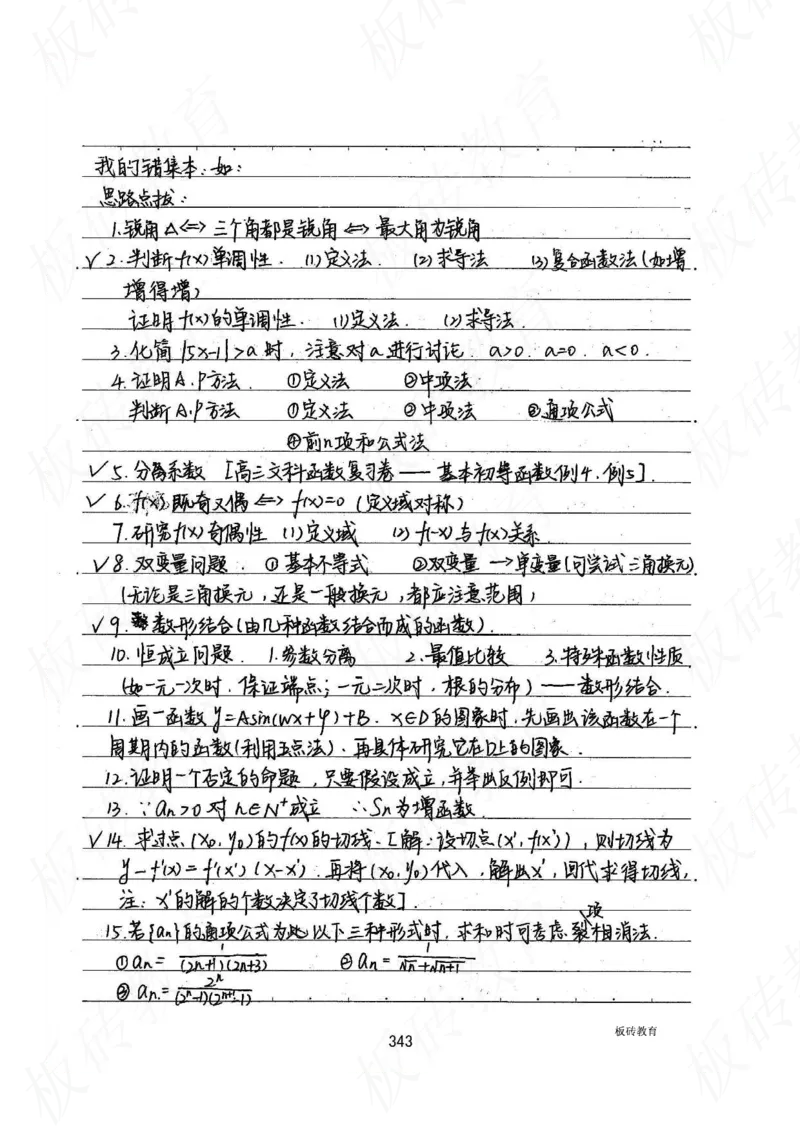 我的错集本：如：
思路点拔：
1.锐角△<=>三个角都是锐角<=>最大角为锐角
√2.判断f(x)单调性. (1)定义法. (2)求导法 (3)复合函数法(如增
增得增)
证明f(x)的单调性. (1)定义法. (2)求导法.
3.化简|5x-1|>a时，注意对a进行讨论. a>0. a=0. a<0.
4.证明A.P方法. ①定义法 ②中项法
判断A.P方法 ①定义法 ②中项法 ③通项公式
④前n项和公式法
√5.分离系数 [高三文科函数复习卷——基本初等函数例4.例5].
√6.f(x)既奇又偶<=>f(x)=0 (定义域对称)
7.研究f(x)奇偶性 (1)定义域 (2)f(-x)与f(x)关系.
√8.双变量问题. ①基本不等式 ②双变量→单变量(可尝试三角换元)
(无论是三角换元，还是一般换元，都应注意范围)
√9.数形结合(由几种函数结合而成的函数).
10.恒成立问题. 1.参数分离 2.最值比较 3.特殊函数性质
(如一元一次时，保证端点；一元二次时，根的分布)——数形结合.
11.画一函数y=Asin(wx+φ)+B. x∈D的图象时，先画出该函数在一个
周期内的函数(利用五点法)，再具体研究它在D上的图象.
12.证明一个否定的命题，只要假设成立，并举出反例即可.
13.∵an>0对n∈N⁺成立 ∴Sn为增函数.
√14.求过点(x₀,y₀)的f(x)的切线.[解：设切点(x',f(x'))，则切线为
y-f'(x)=f'(x')(x-x').再将(x₀,y₀)代入，解出x'，回代求得切线，
注：x'的解的个数决定了切线个数].
15.若{an}的通项公式为此以下三种形式时，求和时可考虑裂项相消法.
①an=1/((2n+1)(2n+3)) ②an=1/(√n+√(n+1))
③an=2ⁿ/((2ⁿ-1)(2ⁿ⁺¹-1))
板砖教育
343